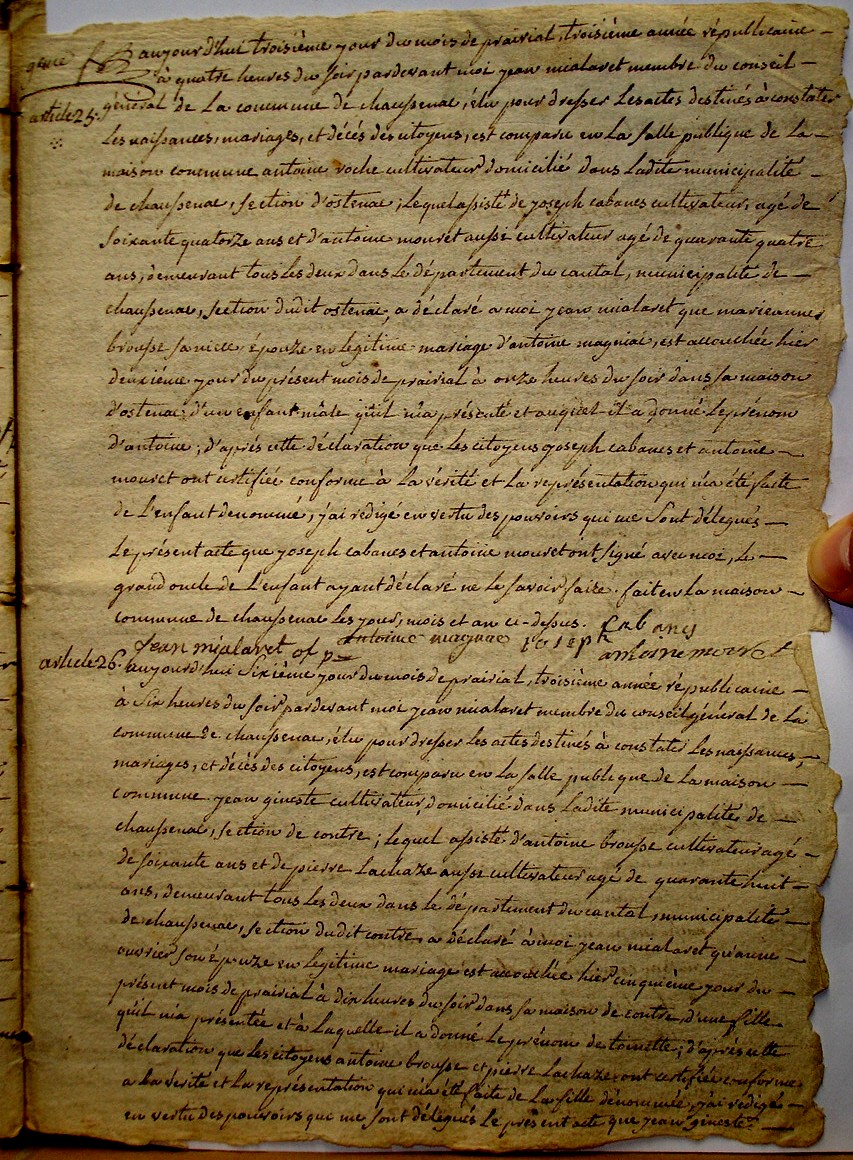 aujourd'hui troisième jour du mois de prairial, troisième année républicaine
à quatre heures du soir pardevant moi jean mialaret membre du conseil
article 25. général de la commune de chaussenac, élu pour dresser les actes destinés à constater
les naissances, mariages, et décés des citoyens, est comparu en la salle publique de la
maison commune antoine roche cultivateur domicilié dans ladite municipalité
de chaussenac, section d'ostenac, lequel assisté de joseph cabanes cultivateur, agé de
soixante quatorze ans et d'antoine mouret aussi cultivateur agé de quarante quatre
ans, demeurant tous les deux dans le département du cantal, municipalité de
chaussenac, section dudit ostenac, a déclaré a moi jean mialaret que marieanne
brousse sa niece épouze en legitime mariage d'antoine magniac, est accouchée hier
deuxiéme jour du présent mois de prairial à onze heures du soir dans sa maison
d'ostenac d'un enfant mâle qu'il m'a présenté et auquel il a donné le prénom
d'antoine; d'après cette déclaration que les citoyens joseph cabanes et antoine
mouret ont certifiée conforme à la vérité et la représentation qui m'a été faite
de l'enfant denommé, j'ai redigé en vertu des pouvoirs qui me sont délegués
le présent acte que joseph cabanes et antoine mouret ont signé avec moi, le
grand oncle de l'enfant ayant déclaré ne le savoir faire. fait en la maison
commune de chaussenac les jour, mois et an ci-dessus.
Jean mialaret of p antoine joseph cabanes
antoine mouret
article 26. aujourd'hui sixième jour du mois de prairial, troisième année républicaine
à six heures du soir pardevant moi jean mialaret membre du conseil général de la
commune de chaussenac, élu pour dresser les actes destinés à constater les naissances,
mariages, et décés des citoyens, est comparu en la salle publique de la maison
commune jean gineste cultivateur, domicilié dans ladite municipalité de
chaussenac, section de contre; lequel assisté d'antoine brousse cultivateur agé
de soixante ans et de pierre lachaze aussi cultivateur agé de quarante huit
ans, demeurant tous les deux dans le département du cantal, municipalité
de chaussenac, section dudit contre, a déclaré à moi jean mialaret qu'anne
ouvrier son épouze en legitime mariage est accouchée hier cinquième jour du
présent mois de prairial à dix heures du soir dans sa maison de contre, d'une fille
qu'il m'a présentée et à laquelle il a donné le prénom de toinette; d'après cette
déclaration que les citoyens antoine brousse et pierre lachaze ont certifiée conforme
a la vérité et la représentation qui m'a été faite de la fille dénommée, j'ai redigé
en vertu des pouvoirs que me sont délegués le présent acte que jean gineste